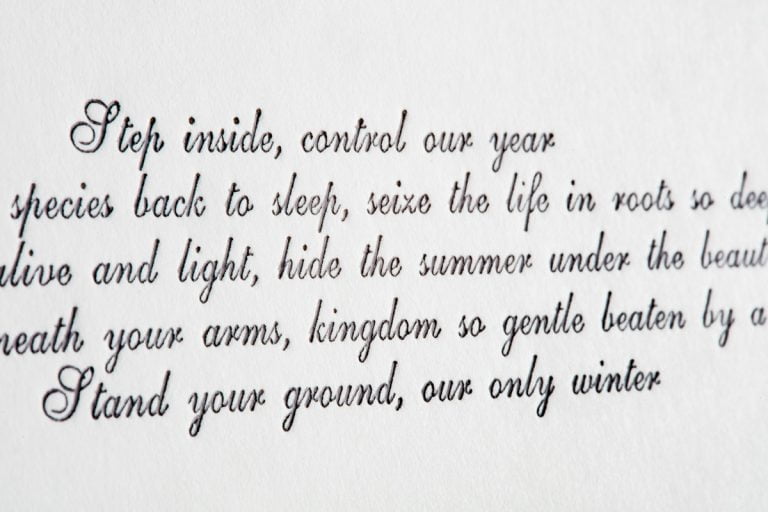 Step inside, control our year
species back to sleep, seize the life in roots so
and light, hide the summer under the
your arms, kingdom so gentle beaten by a
Stand your ground, our only winter